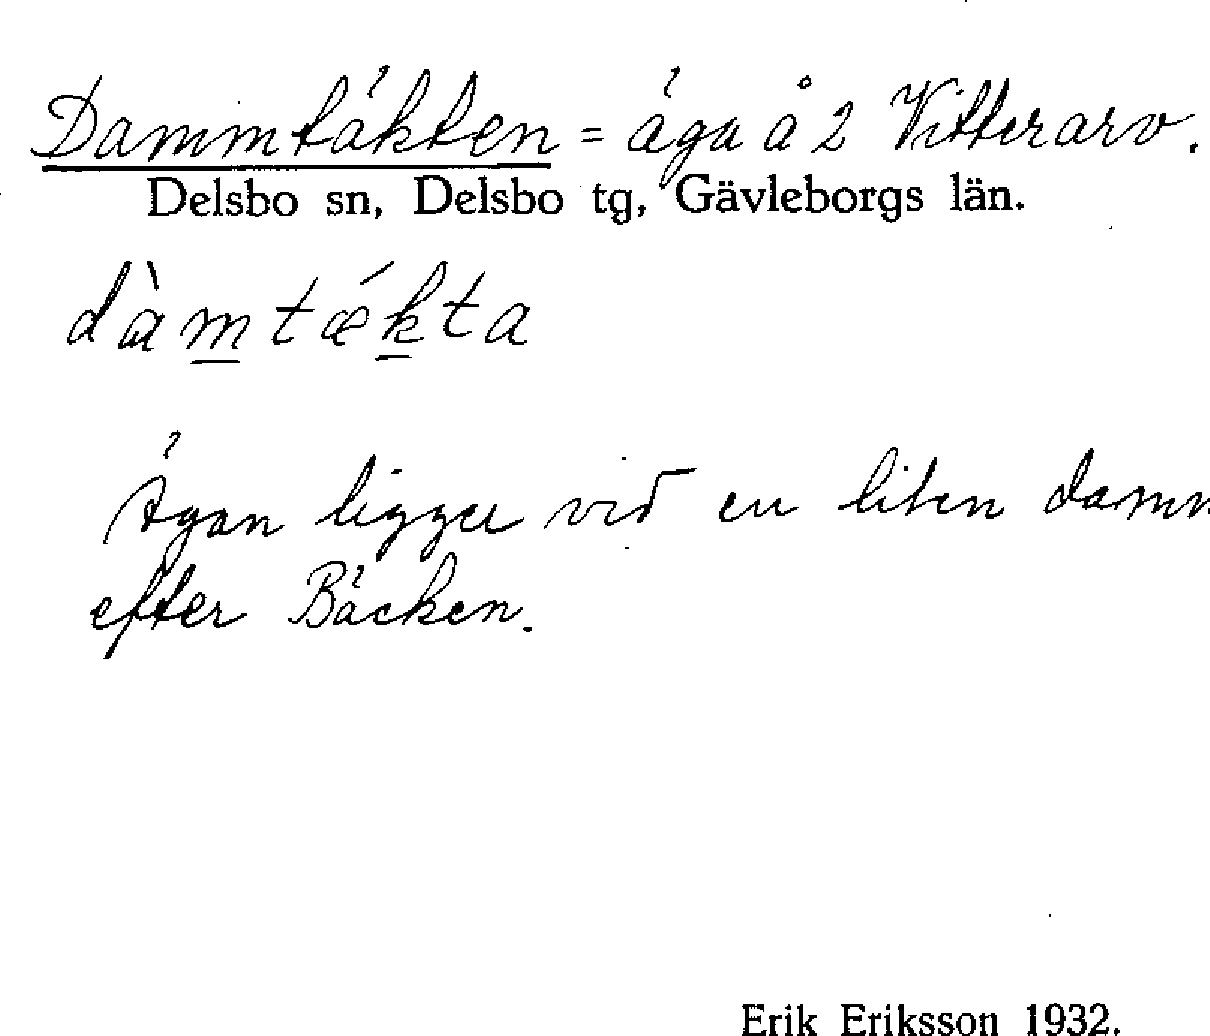 Dammtäkten = äga å 2 Vitterarv.
Delsbo sn, Delsbo tg, Gävleborgs län.
dàmtǽkta
Ägan ligger vid en liten damm
efter Bäcken.
Erik Eriksson 1932.